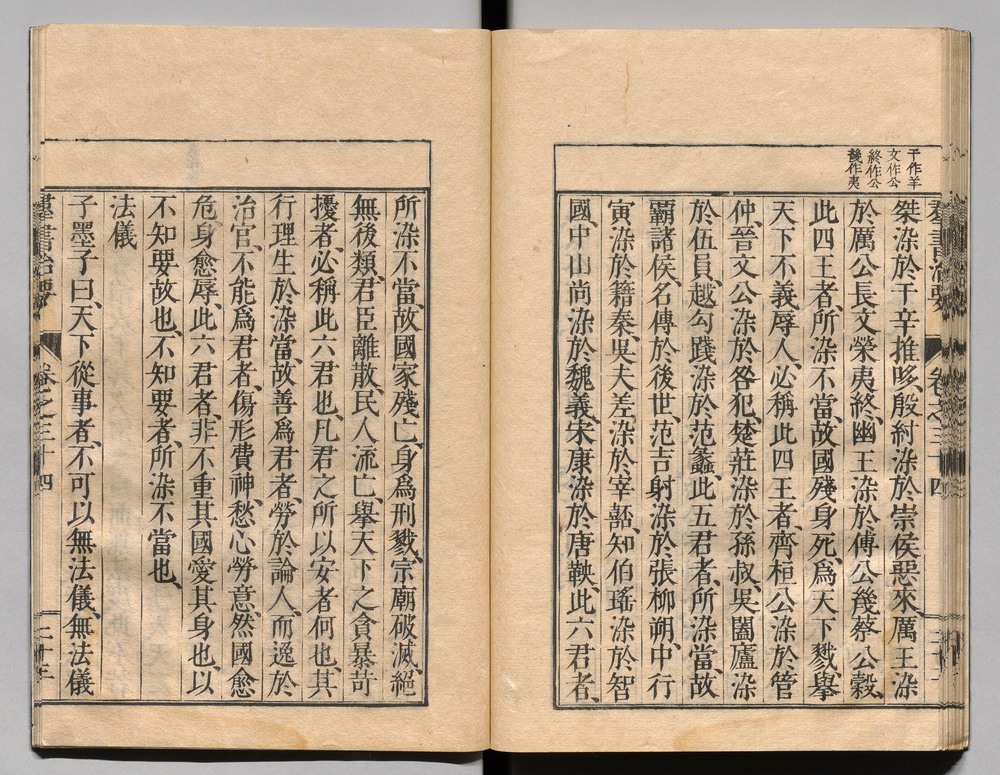 干作羊
文作公
終作公
㡬作夷
桀染於干辛推哆、殷紂染於崇侯惡來、厲王染
於厲公長文榮夷終、幽王染於傅公㡬蔡公穀、
此四王者、所染不當、故國殘身死、爲天下戮、擧
天下不義辱人、必稱此四王者、齊桓公染於管
仲、晉文公染於咎犯、楚莊染於孫叔、吳闔廬染
於伍員、越勾踐染於范蠡、此五君者、所染當、故
霸諸侯、名傳於後世、范吉射染於張柳朔、中行
寅染於籍秦、吳夫差染於宰嚭、知伯瑤染於智
國、中山尚染於魏義、宋康染於唐鞅、此六君者、
所染不當、故國家殘亡、身爲刑戮、宗廟破滅、絕
無後類、君臣離散、民人流亡、擧天下之貪暴苛
擾者、必稱此六君也、凡君之所以安者何也、其
行理生於染當、故善爲君者、勞於論人、而逸於
治官、不能爲君者、傷形費神、愁心勞意、然國愈
危、身愈辱、此六君者、非不重其國愛其身也、以
不知要故也、不知要者、所染不當也、
法儀
子墨子曰、天下從事者、不可以無法儀、無法儀
羣書治要 卷之三十四